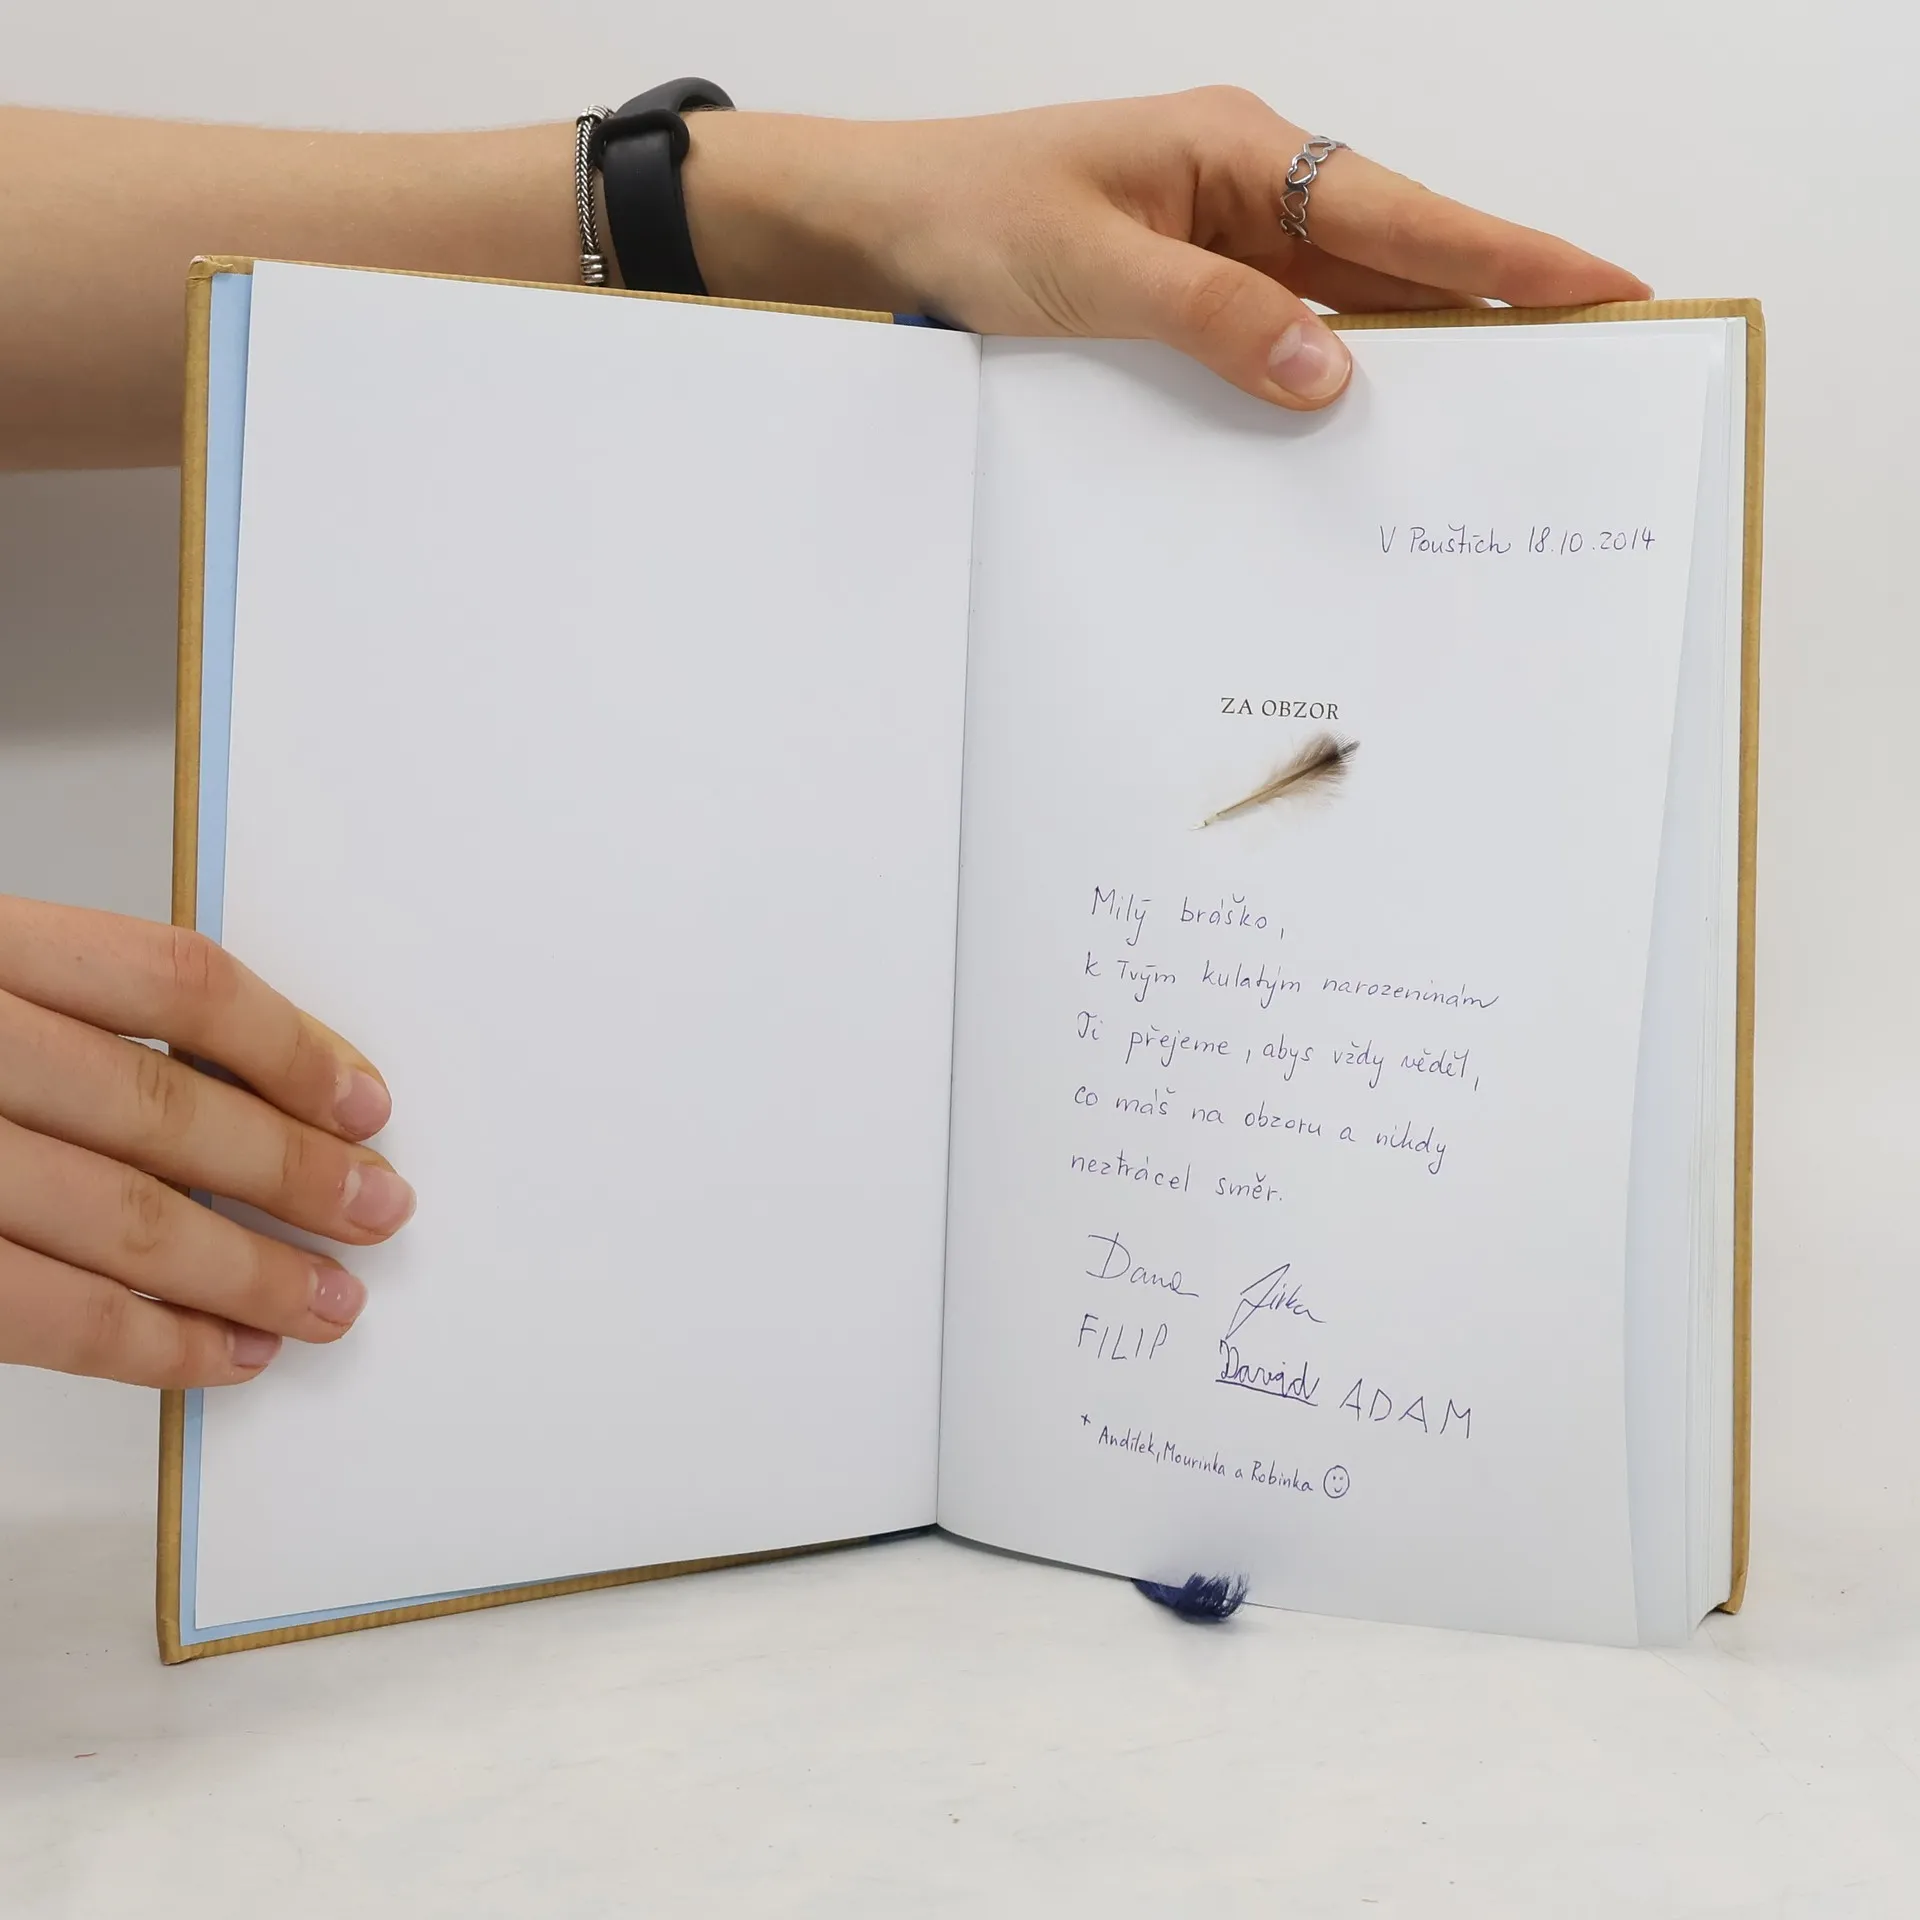 V Pouštích 18.10.2014
ZA OBZOR
Milý bráško,
k Tvým kulatým narozeninám
Ti přejeme, abys vždy věděl,
co máš na obzoru a nikdy
neztrácel směr.
Dana Jirka
FILIP David ADAM
* Andílek, Mourinka a Robinka